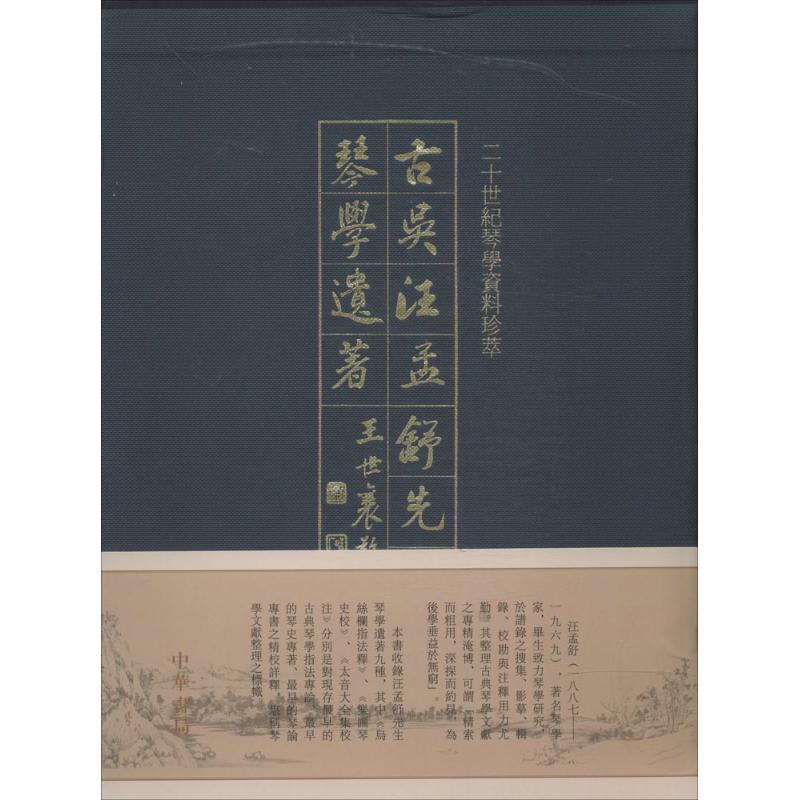 二十世紀琴學資料珍萃
古吳汪孟舒先
琴學遺著
王世襄敬
汪孟舒（一八八七——
一九六九），著名琴學
家，畢生致力琴學研究，
於譜錄之搜集、影摹、輯
錄、校勘與注釋用力尤
勤，其整理古典琴學文獻
之專精淹博，可謂「精索
而粗用，深探而約見，為
後學垂益於無窮」。
本書收錄汪孟舒先生
琴學遺著九種，其中《烏
絲欄指法釋》《樂圃琴
史校》、《太音大全集校
注》分別是對現存最早的
古典琴學指法專論、最早
的琴史專著、最早的琴論
專書之精校詳釋，堪稱琴
學文獻整理之標幟
中華書局